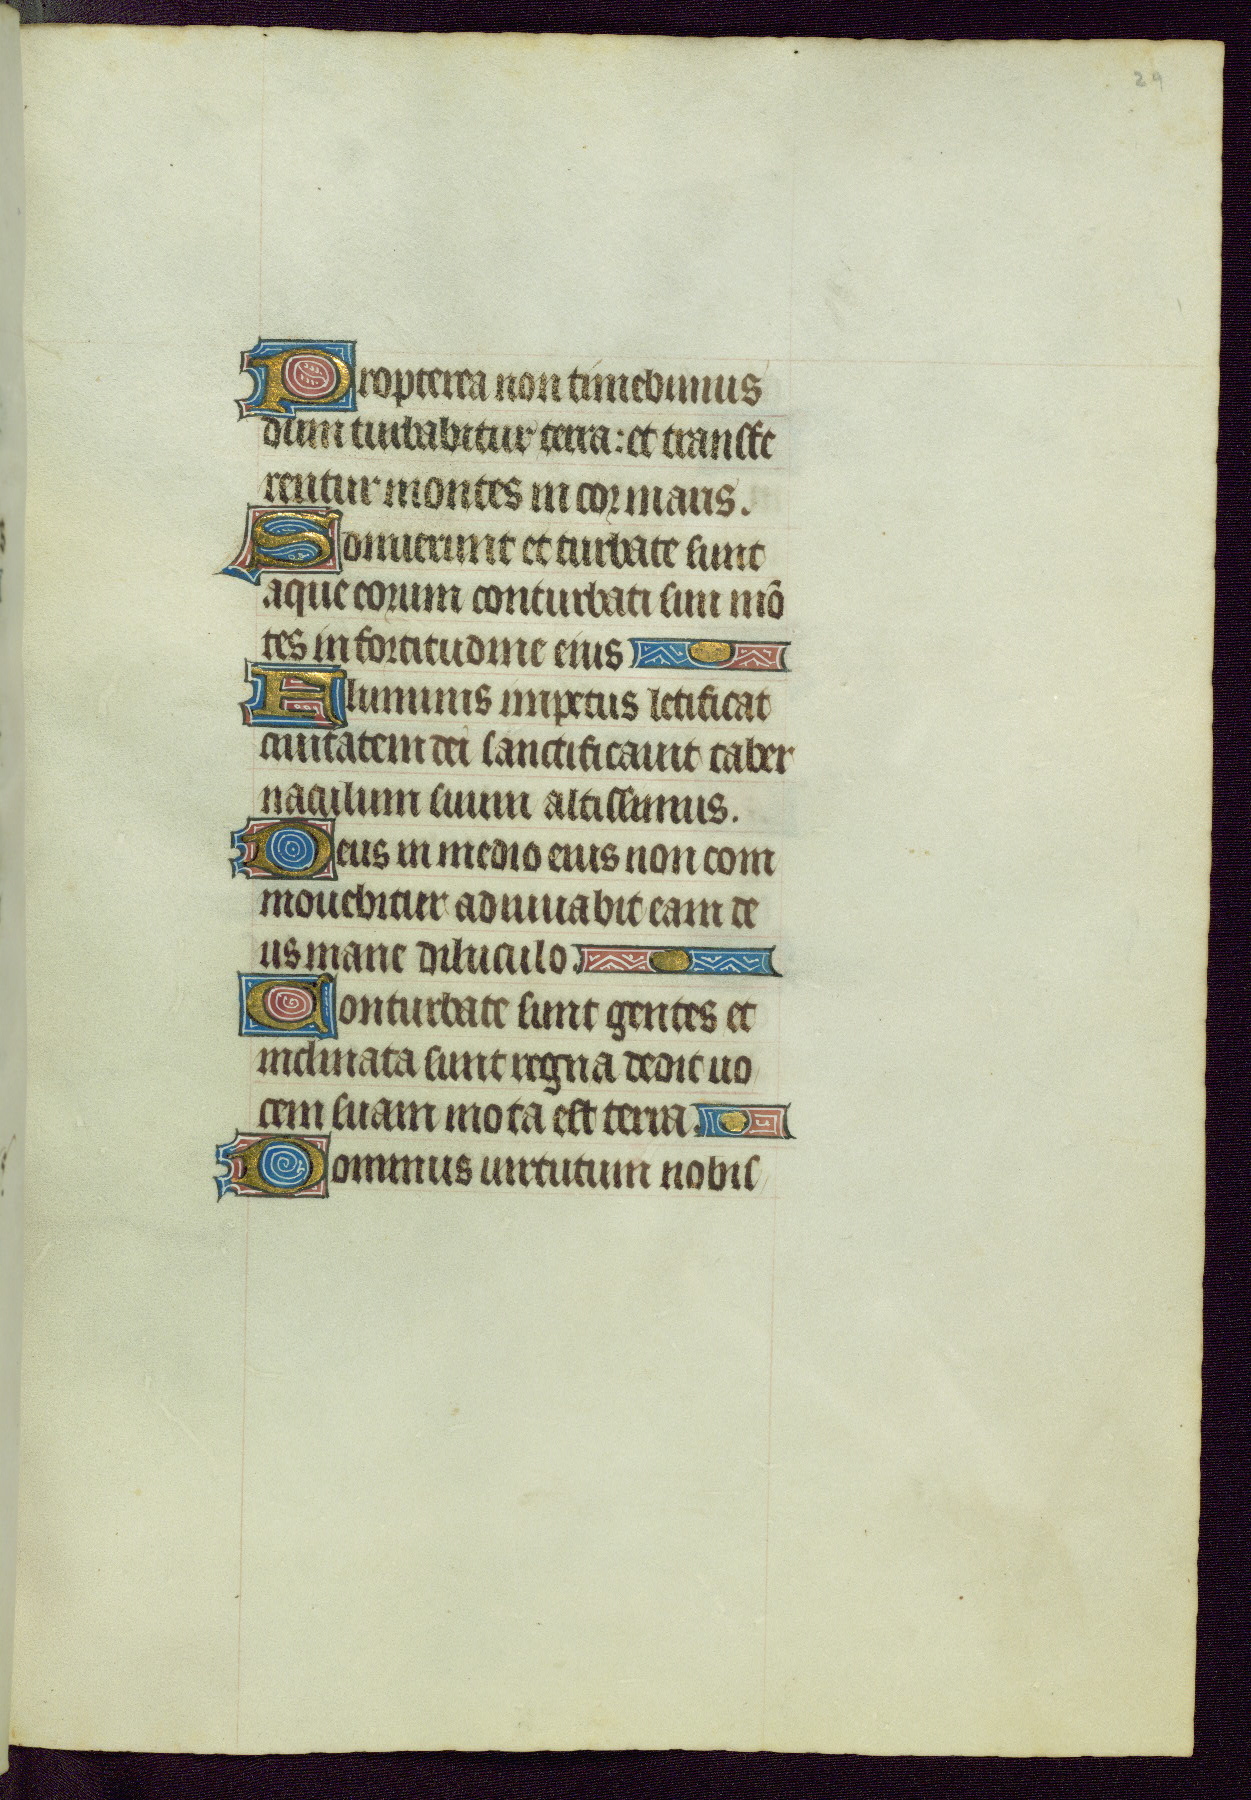 29
Propterea non timebimus
dum turbabitur terra: et transfe
rentur montes in cor maris.
Sonuerunt et turbate sunt
aque eorum conturbati sun mõ
tes in fortitudine eius
Fluminis impetus letificat
ciuitatem dei sanctificauit taber
naculum suum altissimus.
Deus in medio eius non com
mouebitur adiuuabit eam de
us mane diluculo.
Conturbate sunt gentes et
inclinata sunt regna dedit uo
cem suam mota est terra.
Dominus uirtutum nobis